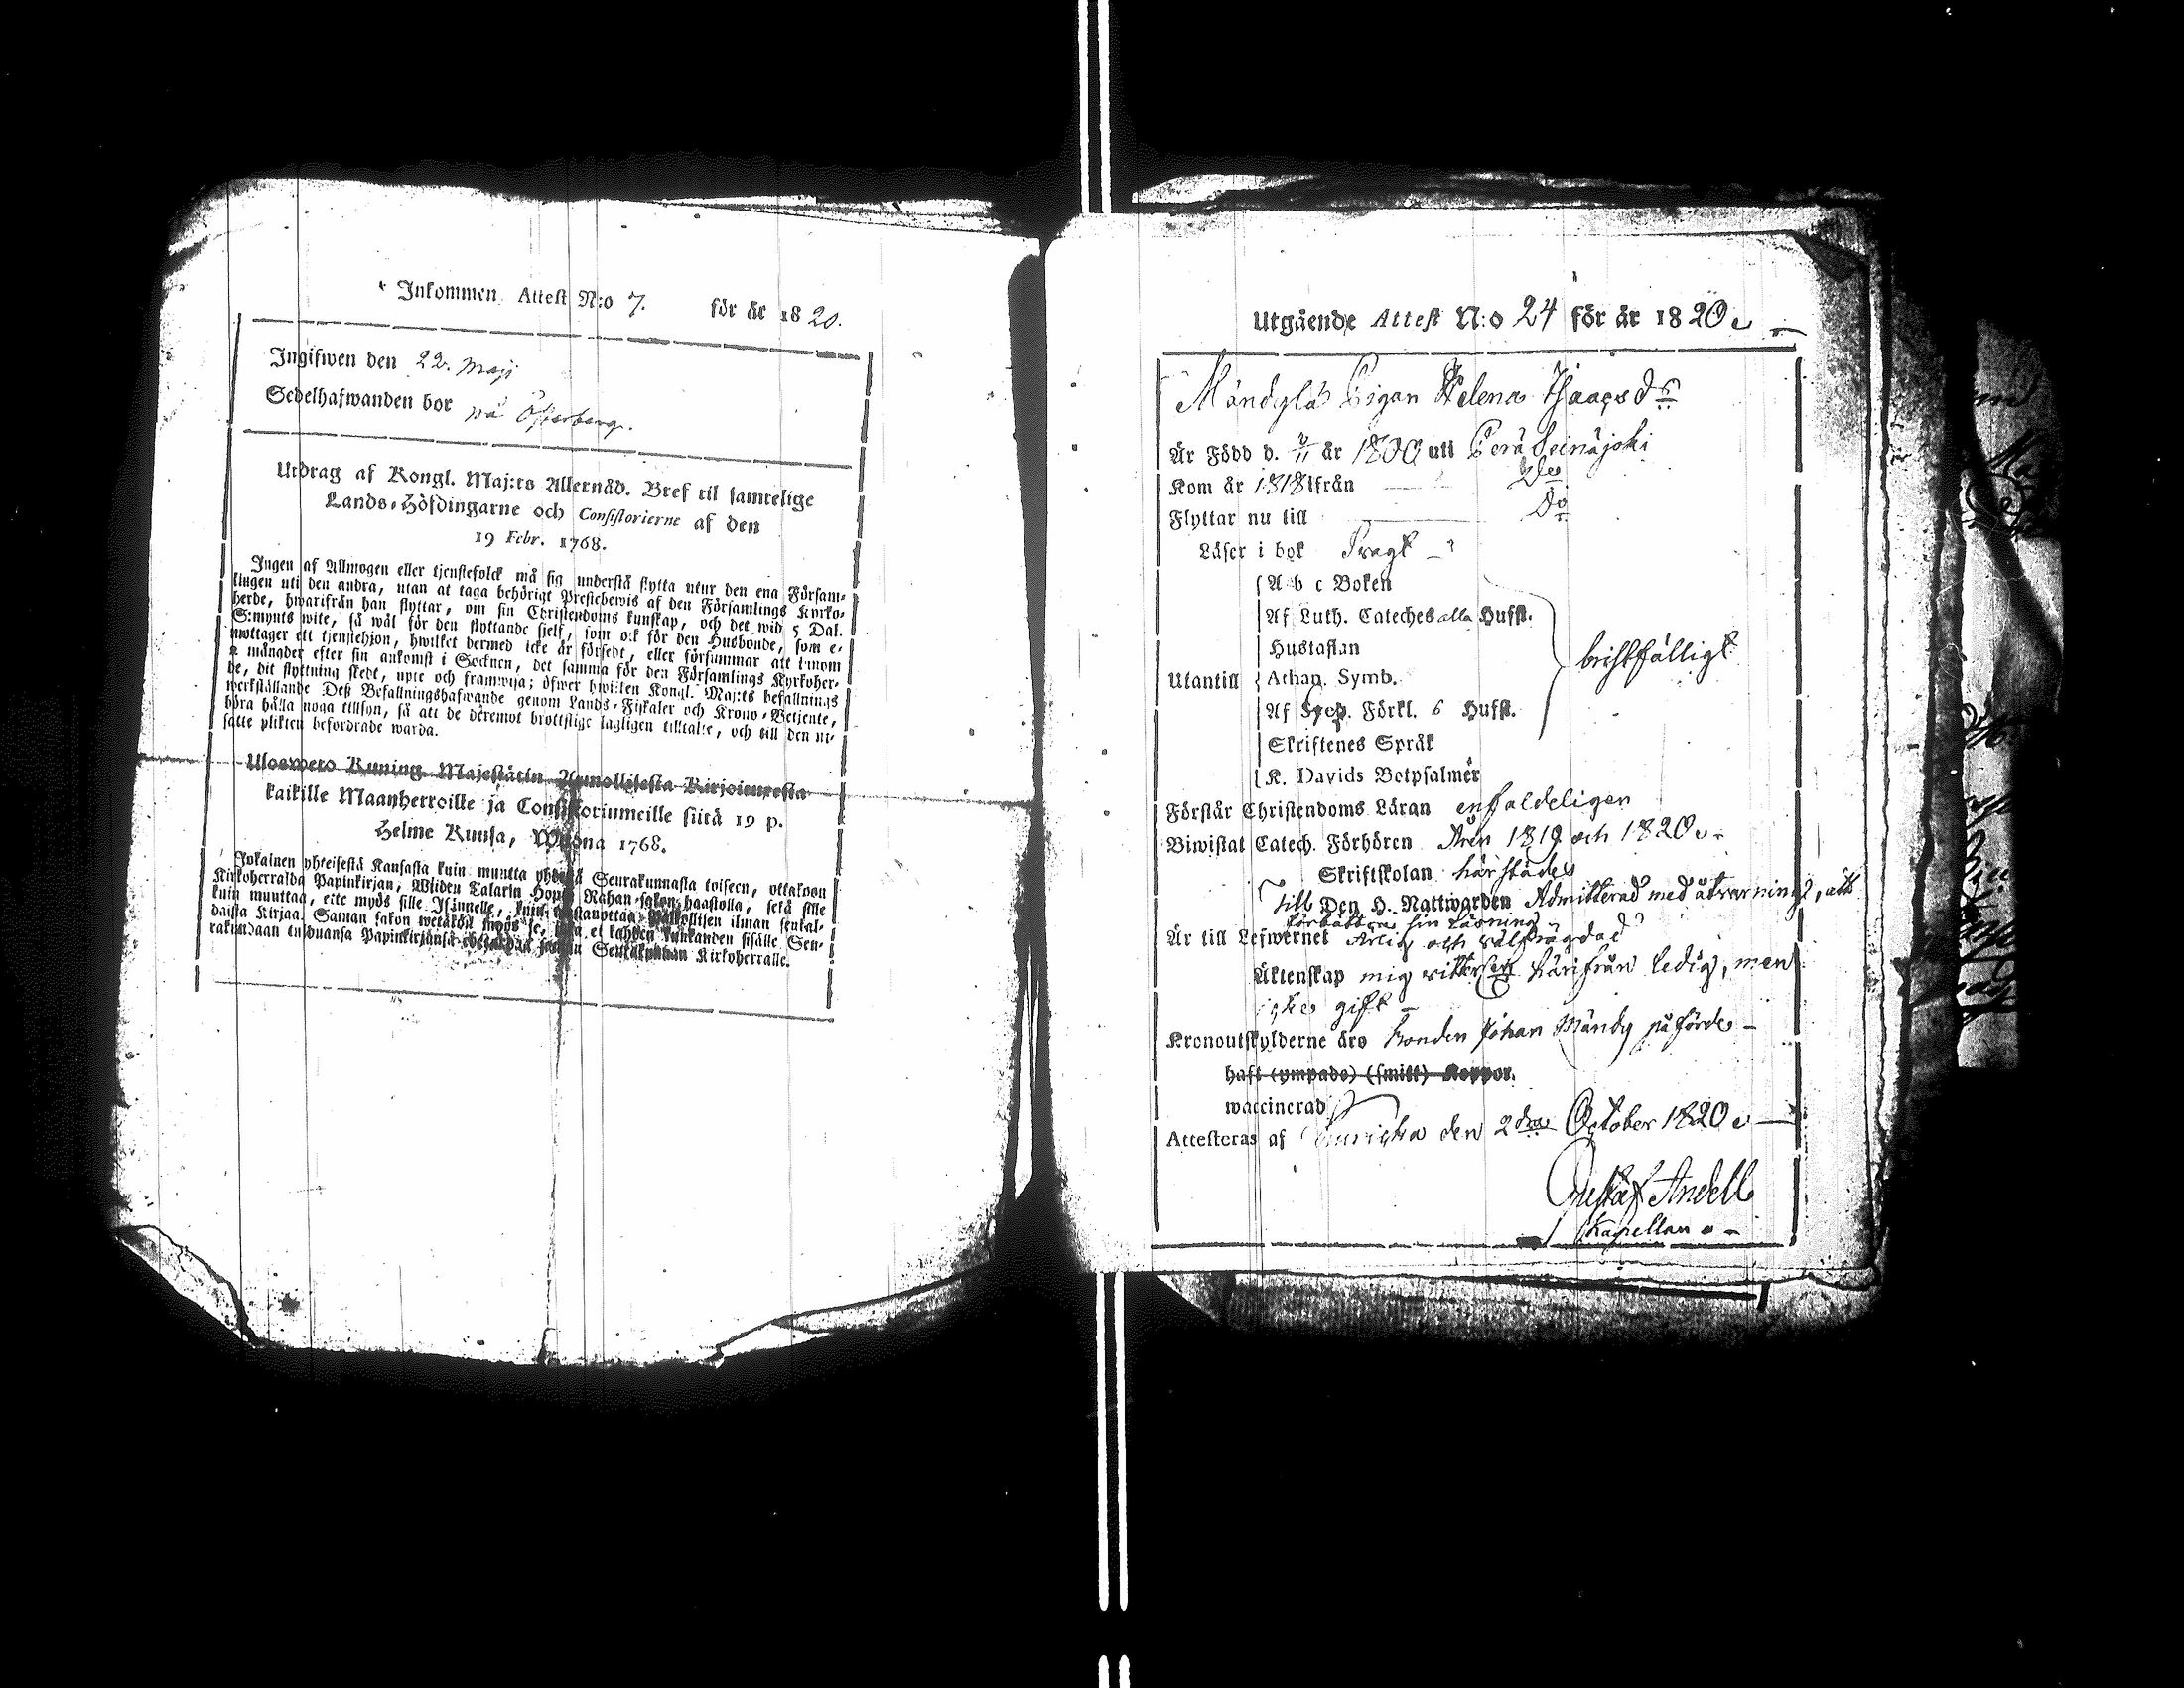 Inkommen Attest N:o 7. för år 1820.
Ingifwen den 22. Maji
Sedelhafwanden bor på Österberg.
Utdrag af Kongl. Maj:ts Allernåd. Bref til samtelige
Lands-Höfdingarne och Consistorierne af den
19 Febr. 1768.
Ingen af Allmogen eller tjenstefolck må sig understå flytta utur den ena Försam-
lingen uti den andra, utan at taga behörigt Prestebewis af den Församlings Kyrko-
herde, hwarifrån han flyttar, om sin Christendoms kunskap, och det wid 5 Dal.
S:mynts wite, så wäl för den flyttande sjelf, som ock för den Husbonde, som e-
mottager ett tjenstehjon, hwilket dermed icke är försedt, eller försummar att innom
2 månader efter sin ankomst i Socknen, det samma för den Församlings Kyrkoher-
de, dit flyttning skedt, upte och framwisa; öfwer hwilken Kongl. Maj:ts befallnings
werkställande Deß Befallningshafwande genom Lands-Fiskaler och Krono-Betjente,
böra hålla noga tillsyn, så att de deremot brottslige lagligen tilltalte, och till den ut-
satte plikten befordrade warda.
Ulosweto Kuning. Majestätin Armollisesta Kirjoituxesta
kaikille Maanherroille ja Consistoriumeille siitä 19 p.
Helme Kuusa, Wuonna 1768.
Jokainen yhteisestä Kansasta kuin muutta yhdestä Seurakunnasta toiseen, ottakoon
Kirkoherralda Papinkirjan, Wiiden Talarin Hopia Rahan sakon haastolla, sekä sille
kuin muuttaa, ette myös sille Isännelle, kuin wastanottaa Palkollisen ilman senkal-
daista Kirjaa. Saman sakon wetäköön myös se, joka ei kahden kuukauden sisälle Seu-
rakundaan tulduansa Papinkirjansa Seurakunnan Kirkoherralle.
Utgående Attest N:o 24 för år 1820
Mändylä Pigan Helena Isaacsdr
Är Född d. år 1800 uti Perä Seinäjoki
Kom år 1818 ifrån Do
Flyttar nu till Do
Läser i bok Swagt
Utantill
A b c Boken
Af Luth. Cateches alla Hufst.
Hustaflan
Athan. Symb.
Af Sveb. Förkl. 6 Hufst.
Skriftenes Språk
K. Davids Botpsalmer
bristfälligt
Förstår Christendoms Läran enfaldeligen
Biwistat Catech. Förhören Åren 1819 och 1820
Skriftskolan härstädes
till Den H. Nattwarden Admitterad med åtwarning, att
förbättra sin läsning
Är till Lefwernet Ärlig och wälfrägdad
Äktenskap mig witterligt härifrån ledig, men
icke gift
Kronoutskylderne äro Bonden Johan Mändy påförde
haft (ympade) (smitt) Koppor.
waccinerad
Attesteras af Kauricka den 2dra October 1820
Gustaf Andell
Kapellan